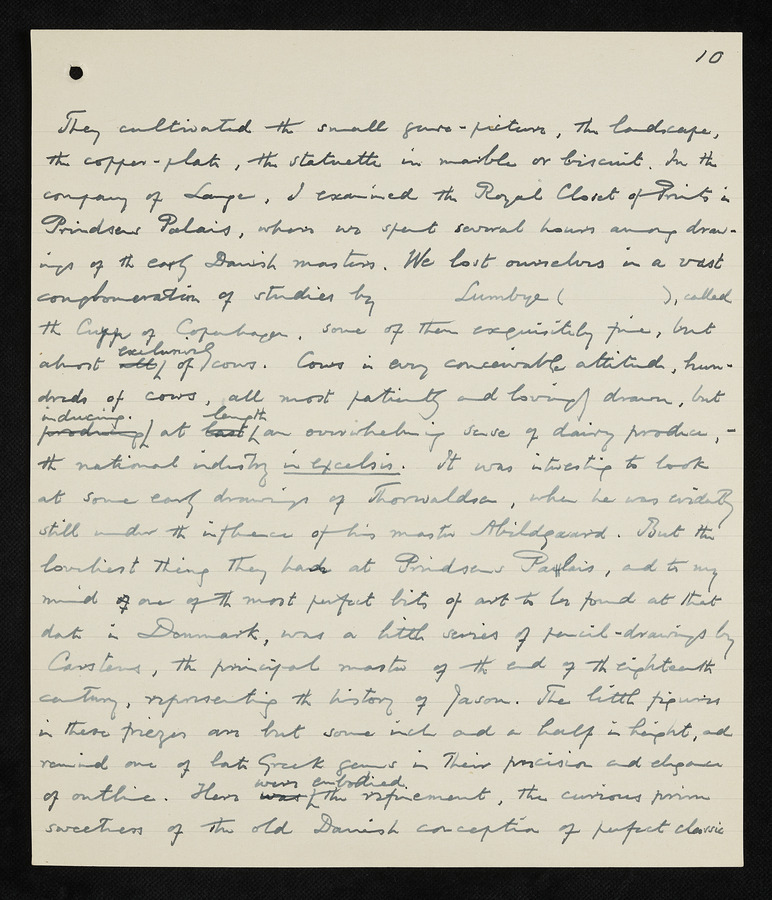 10
They cultivated the small genre-picture, the landscape,
the copper-plate, the statuette in marble or biscuit. In the
company of Lange, I examined the Royal Closet of Prints in
Prindsens Palais, where we spent several hours among draw-
ings of the early Danish masters. We lost ourselves in a vast
conglomeration of studies by Lumbye ( ), called
the Cuyp of Copenhagen, some of them exquisitely fine, but
almost all exclusively of cows. Cows in every conceivable attitude, hun-
dreds of cows, all most patiently and lovingly drawn, but
producing inducing at last length an overwhelming sense of dairy produce, -
the national industry in excelsis. It was interesting to look
at some early drawings of Thorwaldsen, when he was evidently
still under the influence of his master Abildgaard. But the
loveliest thing they had at Prindsens Palais, and to my
mind one of the most perfect bits of art to be found at that
date in Denmark, was a little series of pencil-drawings by
Carstens, the principal master of the end of the eighteenth
century, representing the history of Jason. The little figures
in these friezes are but some inch and a half in height, and
remind one of late Greek gems in their precision and elegance
of outline. Here was were embodied the refinement, the curious prim
sweetness of the old Danish conception of perfect classic